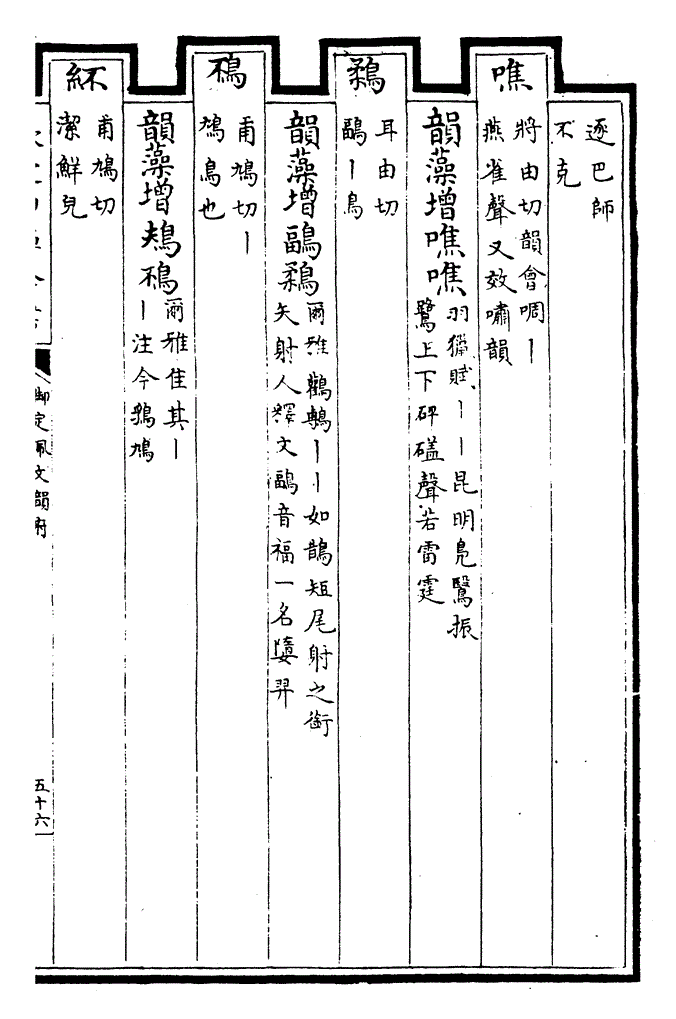 逐巴師
不克
噍
將由切韻會啁丨
燕雀聲又效嘯韻
韻藻增噍噍
羽獵賦丨丨昆明鳧鷖振
鷺上下砰磕聲若雷霆
鶔
耳由切
鶝丨鳥
韻藻增鶝鶔
爾雅鸛鷒丨丨如鵲短尾射之銜
矢射人釋文鶝音福一名䲿羿
鴀
甫鳩切丨
鳩鳥也
韻藻增鳺鴀
爾雅隹其丨
丨注今鵓鳩
紑
甫鳩切
潔鮮皃
御定佩文韻府
五十六